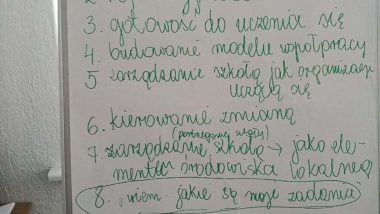 3. gotowość do uczenia się
4. budowanie modelu współpracy
5 zarządzanie szkołą jak organizacją
uczącą się
6. kierowanie zmianą
7. zarządzanie szkołą → jako ele-
mentem środowiska lokalnego
8. wiem jakie są moje zadania